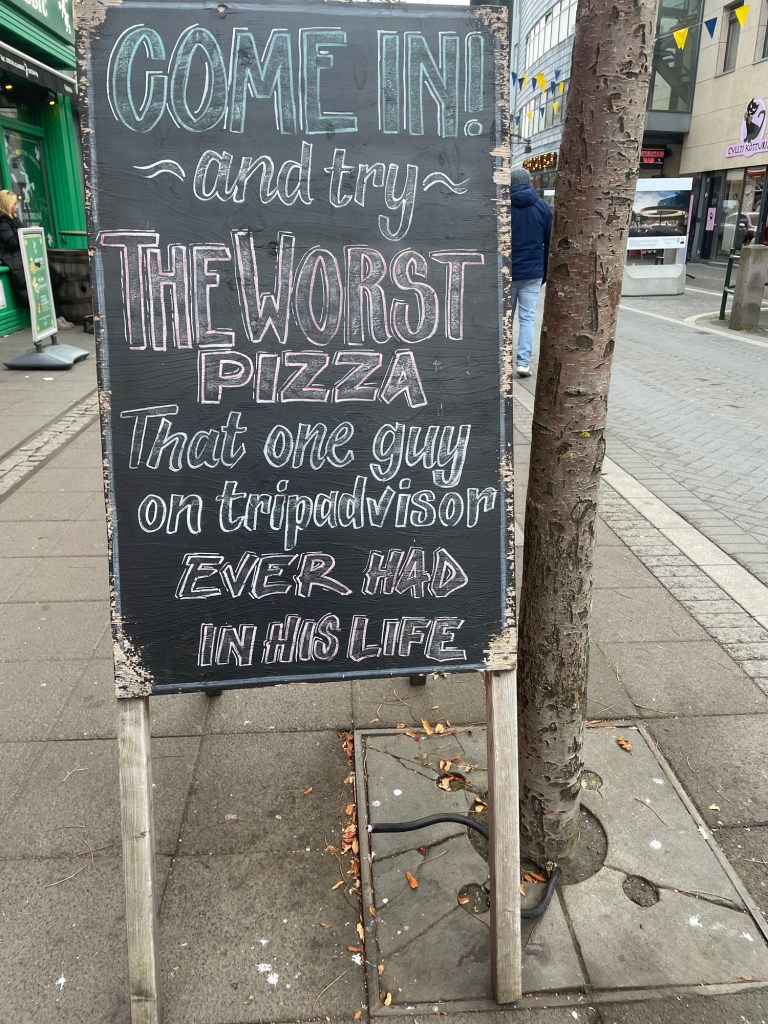 COME IN!
~ and try ~
THE WORST
PIZZA
That one guy
on tripadvisor
EVER HAD
IN HIS LIFE